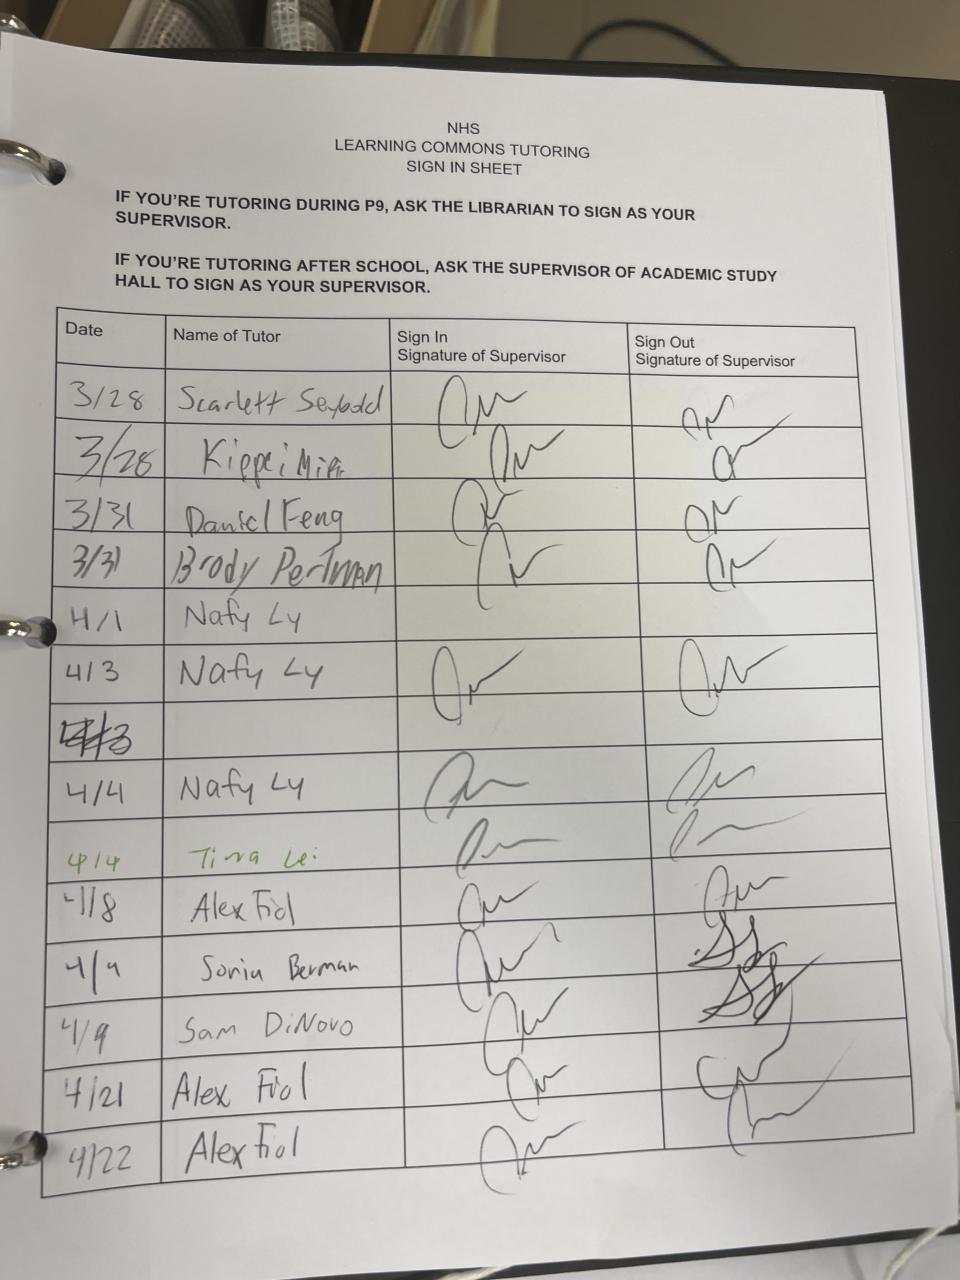 NHS
LEARNING COMMONS TUTORING
SIGN IN SHEET
IF YOU'RE TUTORING DURING P9, ASK THE LIBRARIAN TO SIGN AS YOUR
SUPERVISOR.
IF YOU'RE TUTORING AFTER SCHOOL, ASK THE SUPERVISOR OF ACADEMIC STUDY
HALL TO SIGN AS YOUR SUPERVISOR.
Date Name of Tutor Sign In Sign Out
Signature of Supervisor Signature of Supervisor
3/28 Scarlett
3/28 Kippei
3/31 Daniel Feng
3/31 Brody Perlman
4/1 Nafy Ly
4/3 Nafy Ly
4/4 Nafy Ly
4/4 Tina Lei
4/8 Alex Fiol
4/9 Berman
4/9 Sam DiNovo
4/21 Alex Fiol
4/22 Alex Fiol